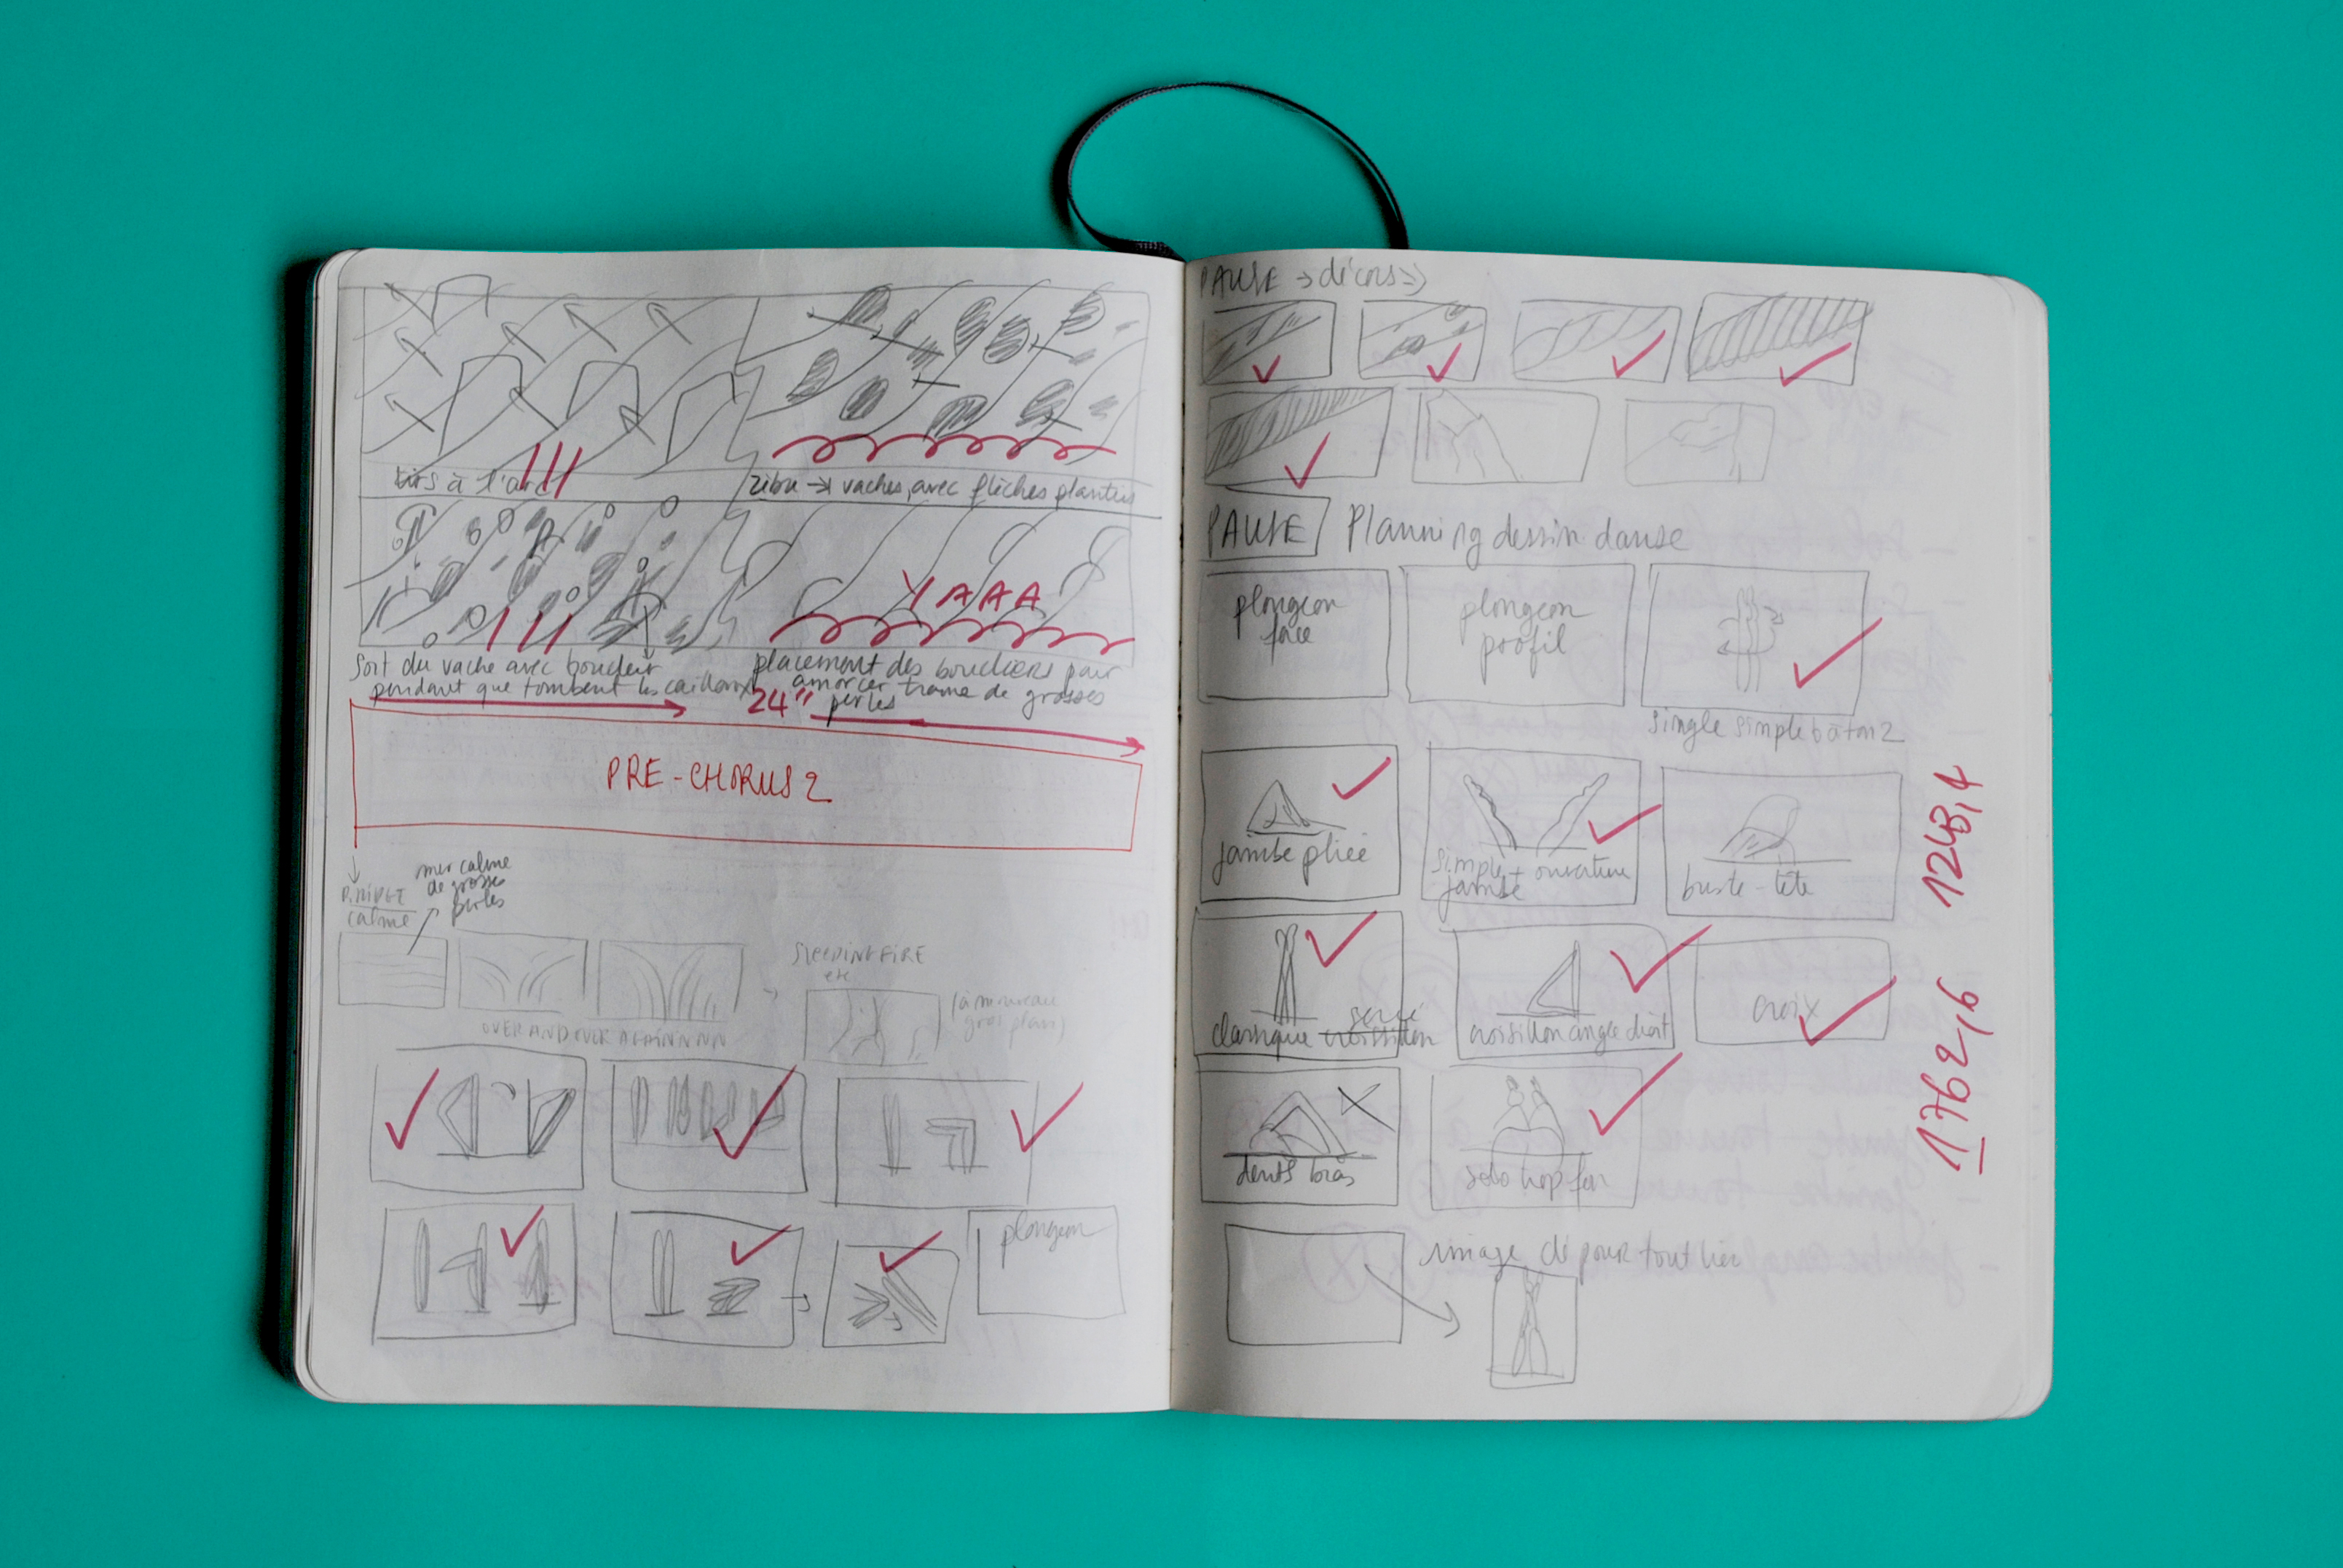 tirs à l'arc
zébu → vaches, avec flèches plantées
YAAA
sort du vache avec bouclier
pendant que tombent les cailloux
placement des boucliers pour
amorcer trame de grosses
perles
24"
PRE-CHORUS 2
calme
mer calme
de grosses
perles
OVER AND OVER AGAINNNNN
SLEEPING FIRE
etc
(à nouveau
gros plan)
plongeon
PAUSE → décors →
PAUSE Planning dessin danse
plongeon
face
plongeon
profil
single simple bâton 2
jambe pliée
simple + ouverture
jambe
buste-tête
classique croisillon
serré
croisillon angle droit
croix
dents bras
solo hop
image clé pour tout lier
1248,4
1762,6